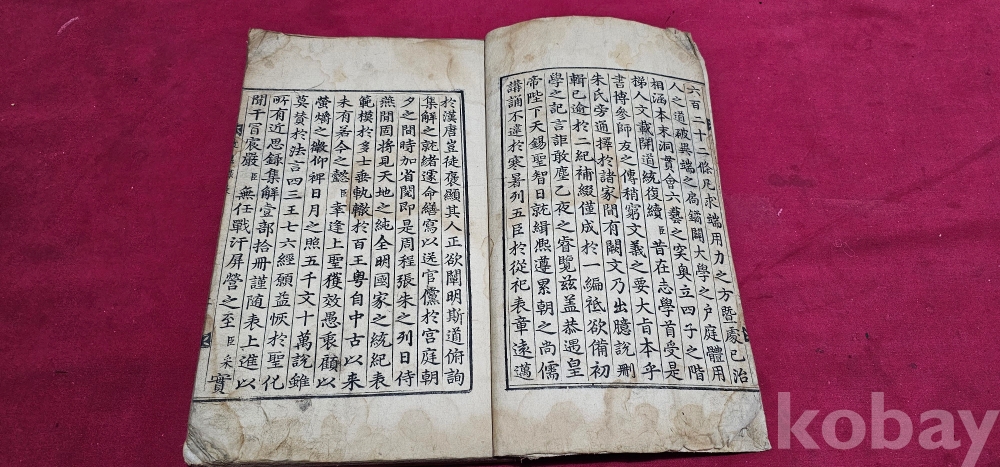 六百二十二條凡求端用力之方暨處已治
人之道破異端之扃鐍闢大學之戶庭體用
相涵本末洞貫會六藝之突奧立四子之階
梯人文載開道統復續臣昔在志學首受是
書博參師友之傳稍窮文義之要大旨本乎
朱氏旁通擇於諸家間有闕文乃出臆說刪
輯已逾於二紀補綴僅成於一編祗欲備初
學之記言詎敢塵乙夜之睿覽茲盖恭遇皇
帝陛下天錫聖智日就緝熙遵累朝之尚儒
講誦不違於寒暑列五臣於從祀表章遠邁
於漢唐豈徒褒顯其人正欲闡明斯道俯詢
集解之就緒運命繕寫以送官儻於宮庭朝
夕之間時加省閱即是周程張朱之列日侍
燕閒固將見天地之純全明國家之統紀表
範模於多士垂軌轍於百王粤自中古以来
未有若今之懿臣幸逢上聖獲效愚衷顧以
螢爝之微仰裨日月之照五千文十萬說雖
莫贊於法言四三王七六經願益恢於聖化
所有近思録集解壹部拾冊謹随表上進以
聞干冒宸嚴臣無任戰汗屏營之至臣采實
kobay